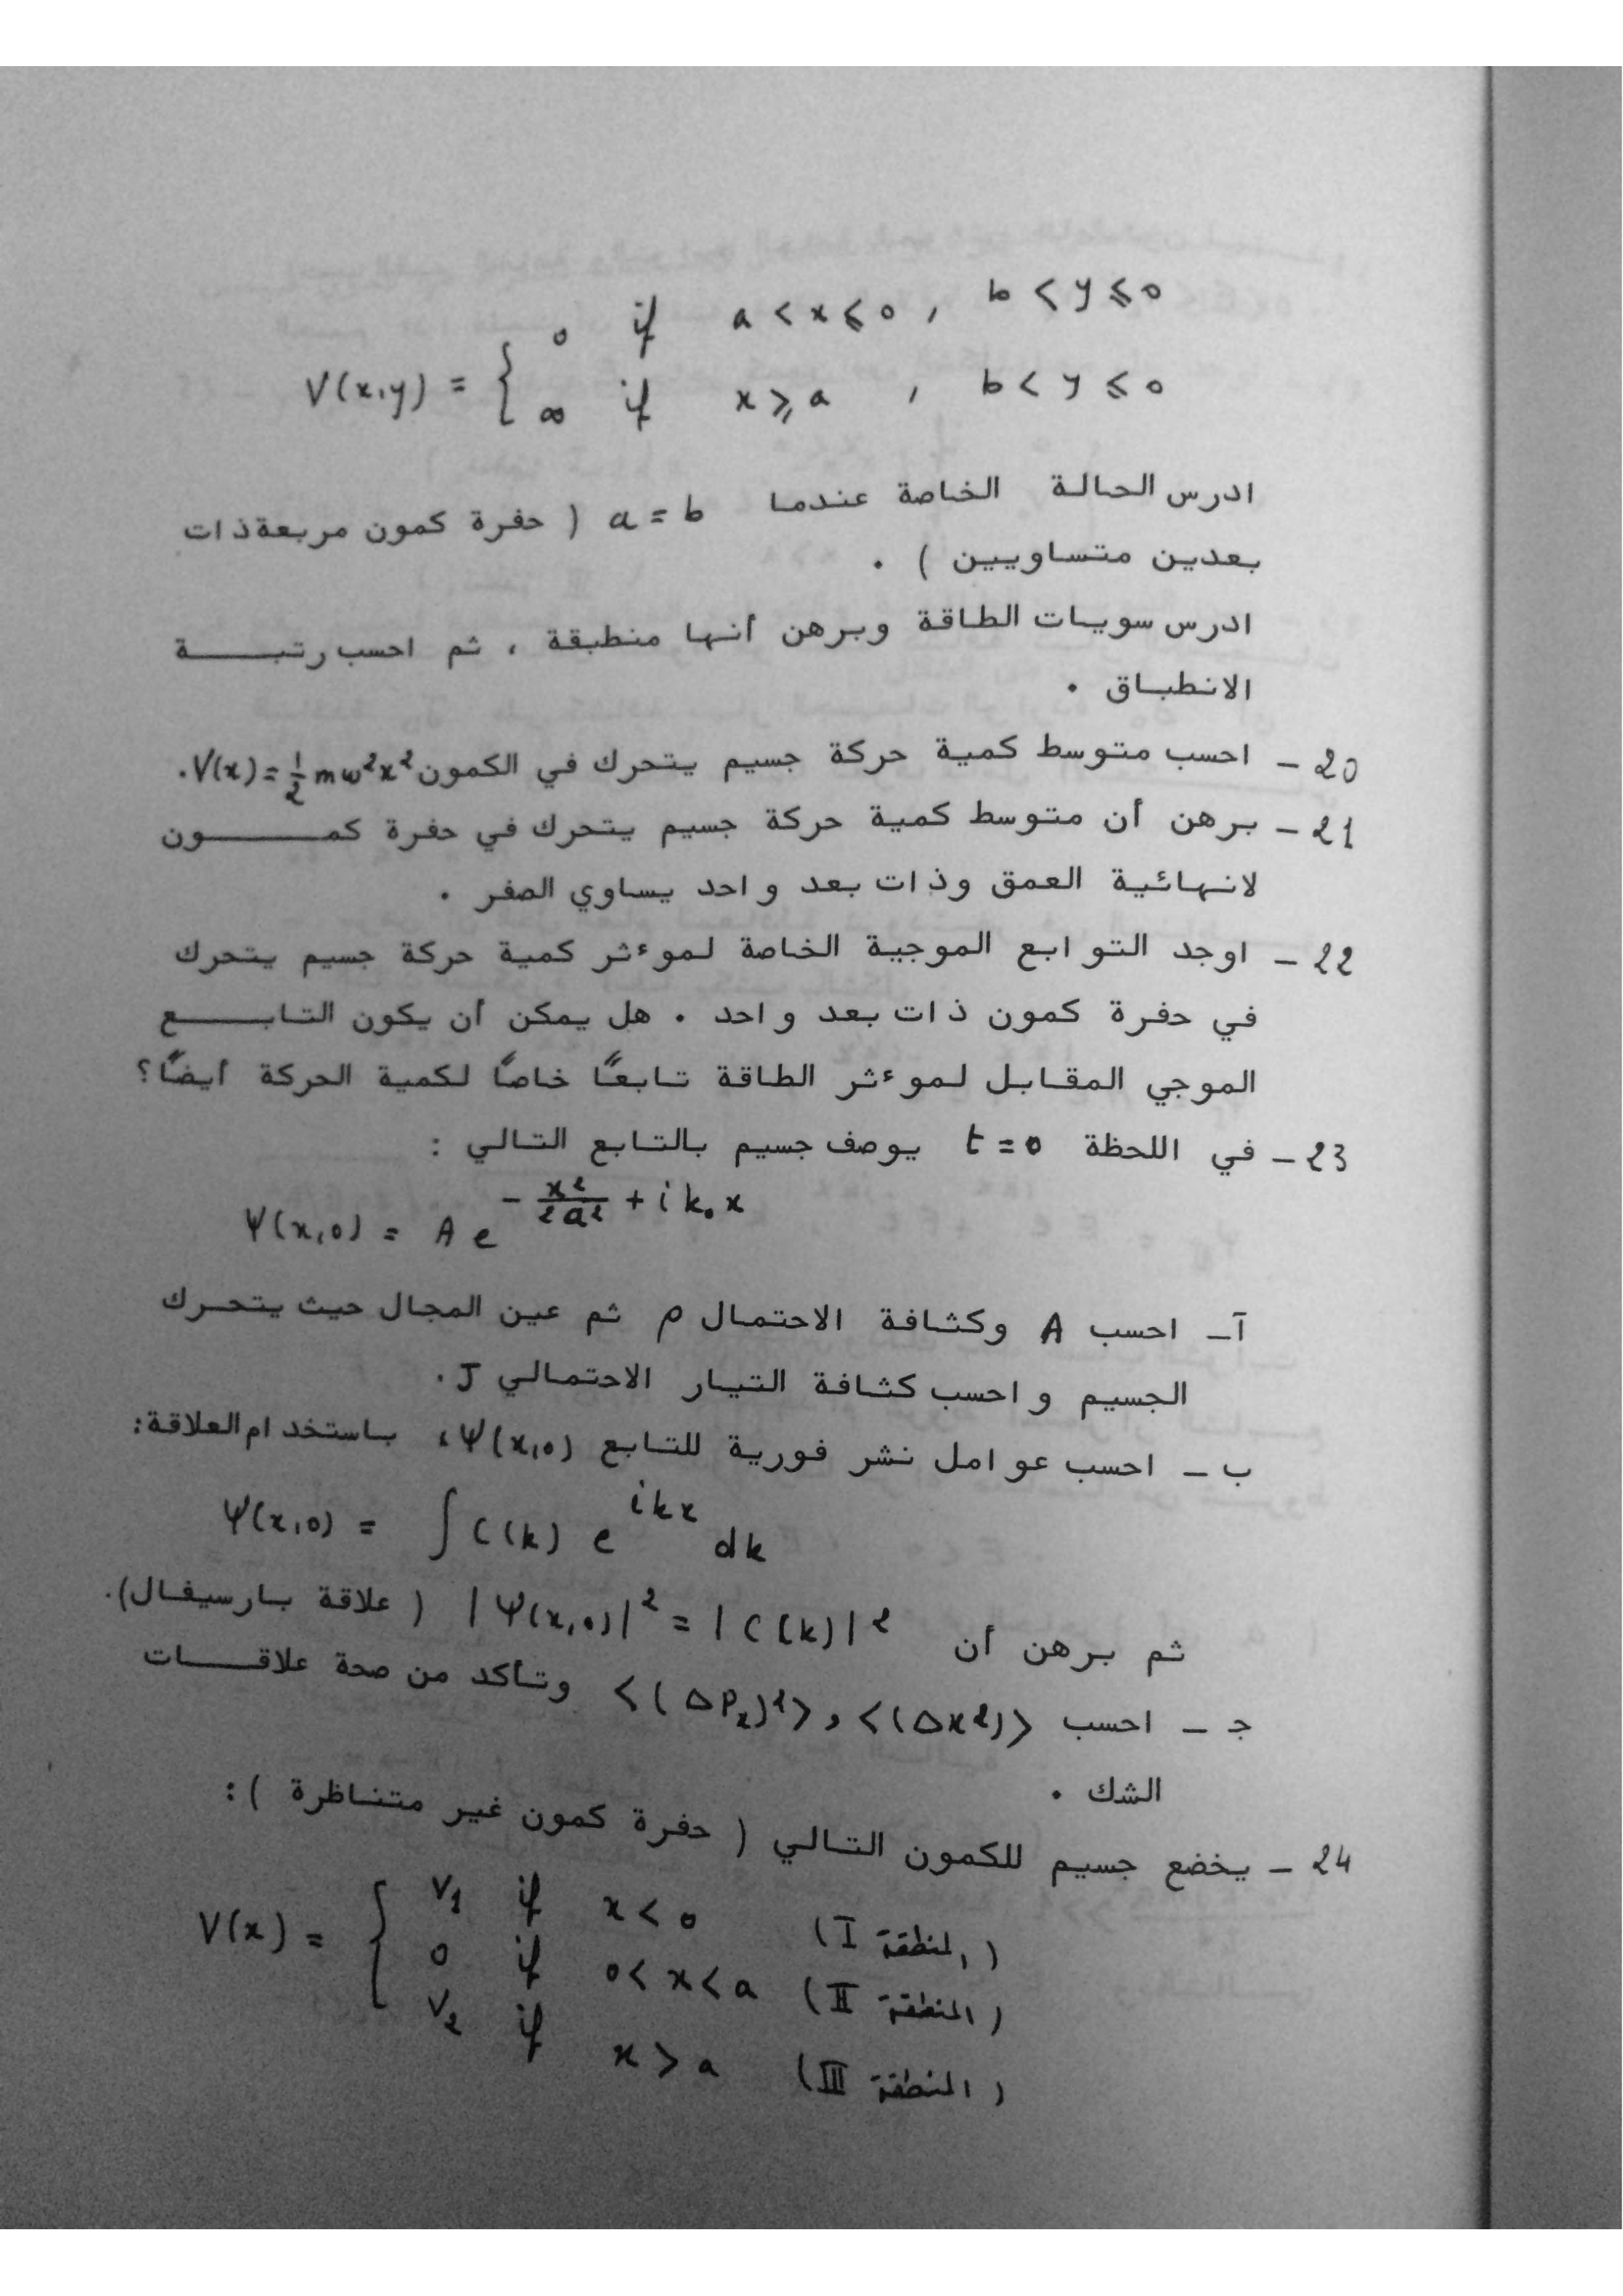 V(x,y) = { 0 if a < x ⩽ 0 , b < y ⩽ 0
∞ if x ⩾ a , b < y ⩽ 0
ادرس الحالة الخاصة عندما a = b ( حفرة كمون مربعة ذات
بعدين متساويين ) .
ادرس سويات الطاقة وبرهن أنها منطبقة ، ثم احسب رتبة
الانطباق .
20 - احسب متوسط كمية حركة جسيم يتحرك في الكمون V(x) = 1/2 mω²x² .
21 - برهن أن متوسط كمية حركة جسيم يتحرك في حفرة كمون
لانهائية العمق وذات بعد واحد يساوي الصفر .
22 - اوجد التوابع الموجية الخاصة لموءثر كمية حركة جسيم يتحرك
في حفرة كمون ذات بعد واحد . هل يمكن أن يكون التابع
الموجي المقابل لموءثر الطاقة تابعاً خاصاً لكمية الحركة أيضاً؟
23 - في اللحظة t = 0 يوصف جسيم بالتابع التالي :
Ψ(x,0) = A e^(- x²/2a² + i k₀ x)
آ - احسب A وكثافة الاحتمال ρ ثم عين المجال حيث يتحرك
الجسيم واحسب كثافة التيار الاحتمالي J .
ب - احسب عوامل نشر فورية للتابع Ψ(x,0) ، باستخدام العلاقة:
Ψ(x,0) = ∫ C(k) e^(ikx) dk
ثم برهن أن |Ψ(x,0)|² = |C(k)|² ( علاقة بارسيفال ) .
جـ - احسب <(Δx²)> و <(ΔPₓ)²> وتأكد من صحة علاقات
الشك .
24 - يخضع جسيم للكمون التالي ( حفرة كمون غير متناظرة ) :
V(x) = { V₁ if x < 0 ( المنطقة I )
0 if 0 < x < a ( المنطقة II )
V₂ if x > a ( المنطقة III )